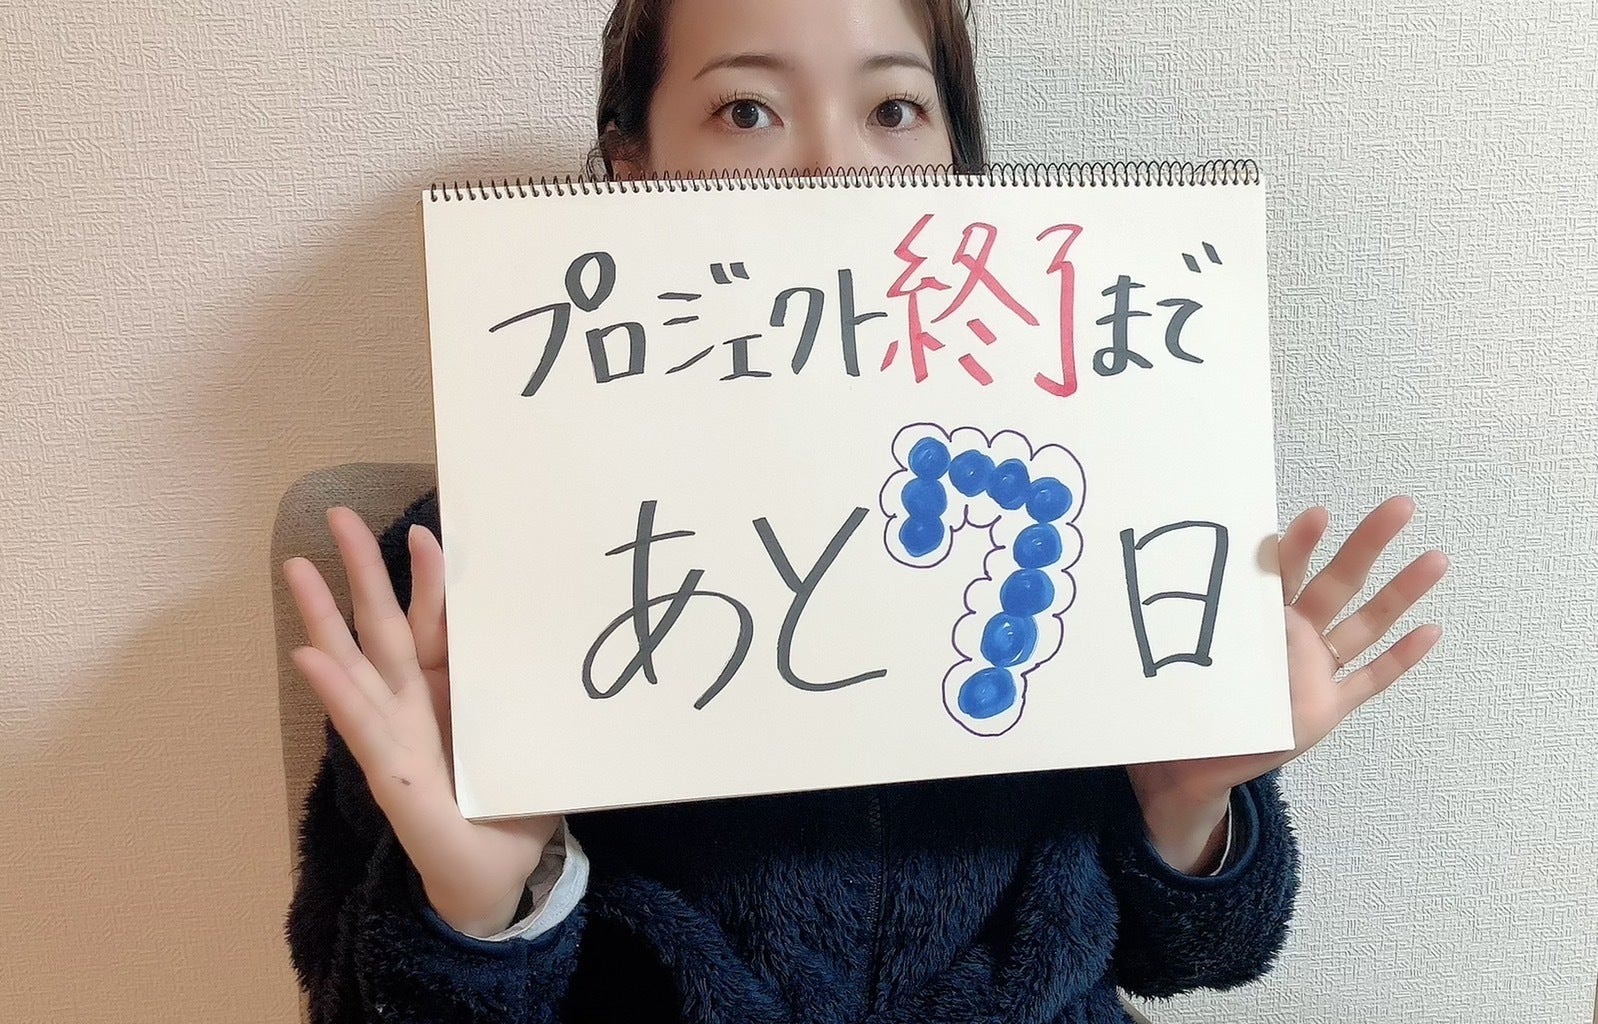 プロジェクト終了まで
あと7日